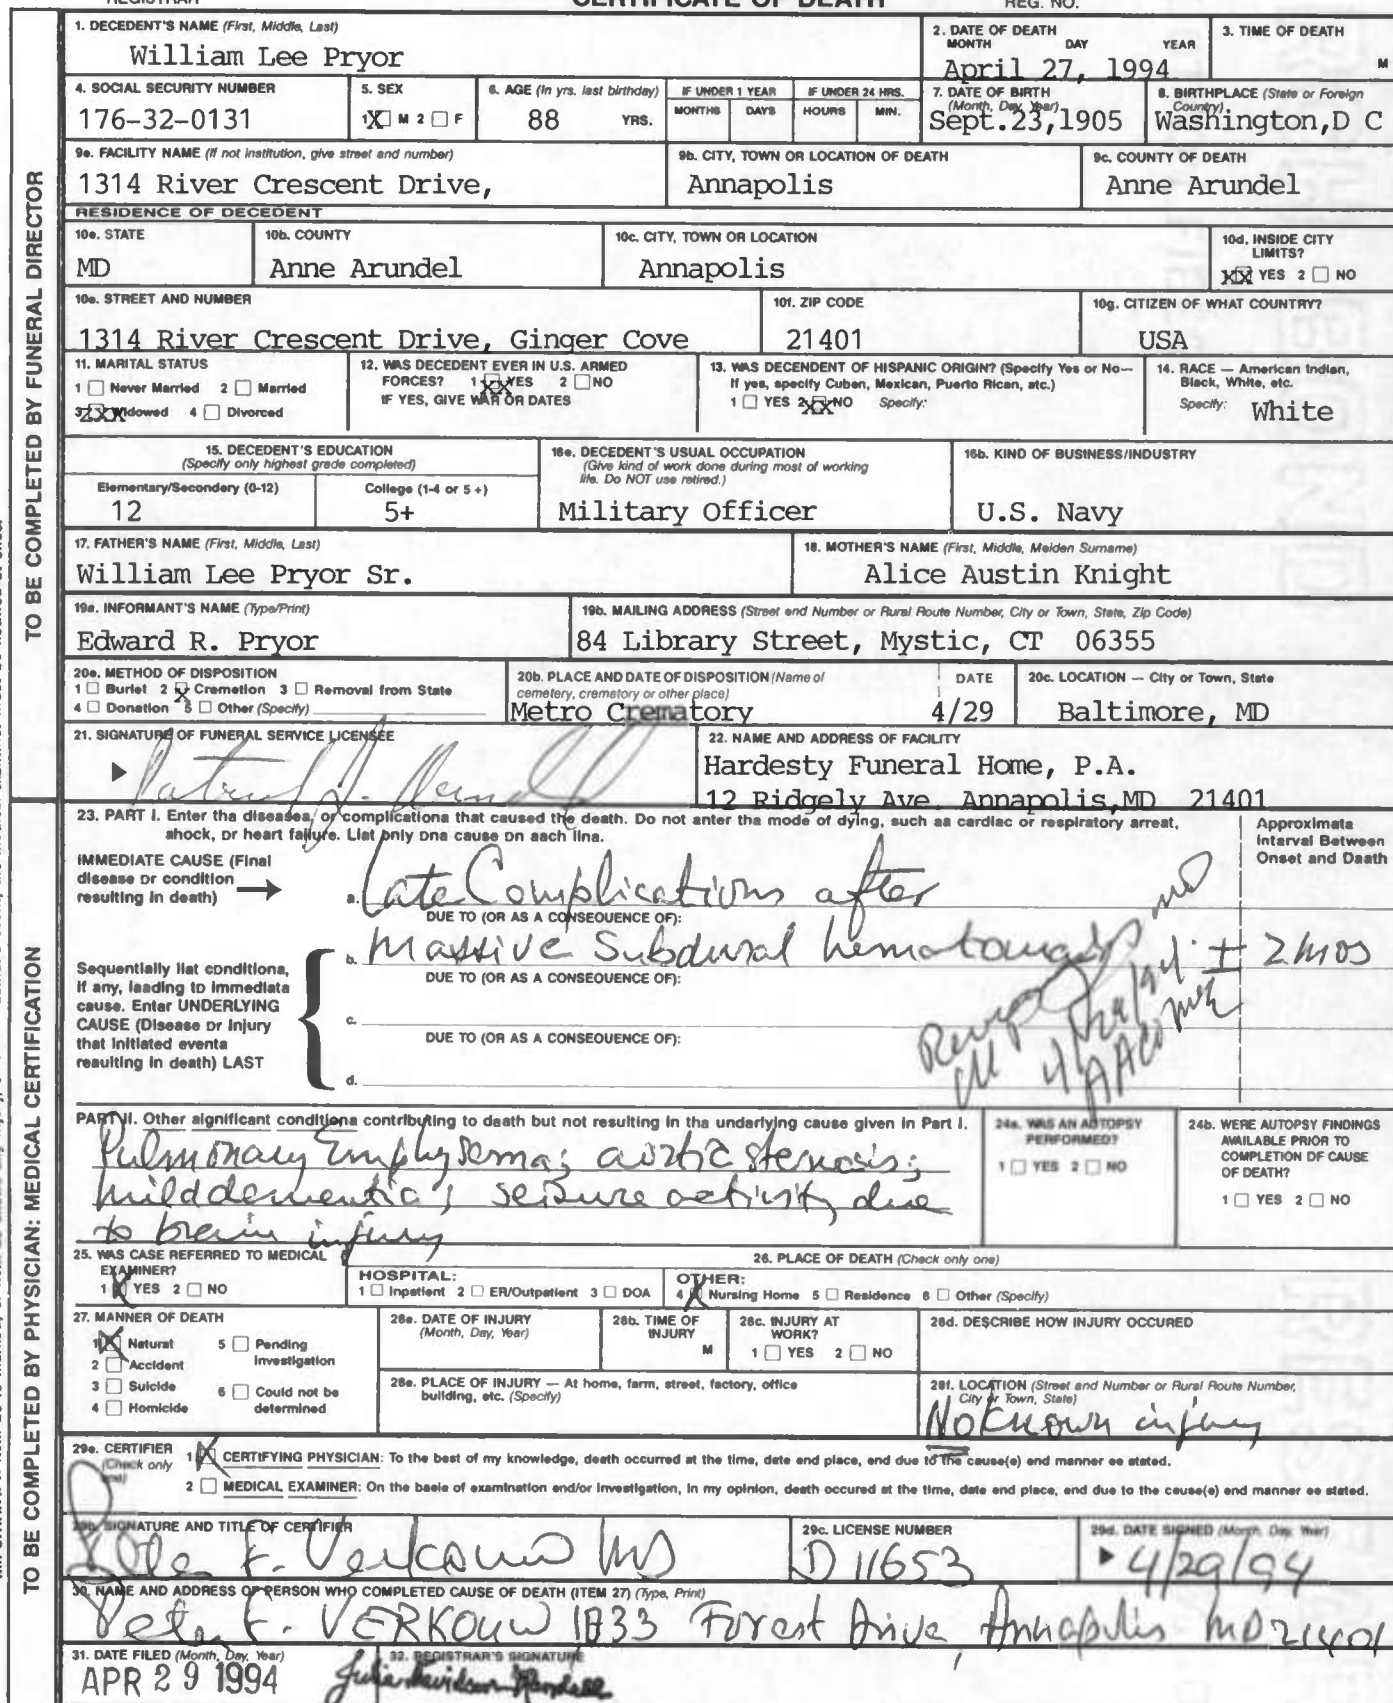 CERTIFICATE OF DEATH
REGISTRAR
REG. NO.
TO BE COMPLETED BY FUNERAL DIRECTOR
1. DECEDENT'S NAME (First, Middle, Last)
William Lee Pryor
2. DATE OF DEATH
MONTH DAY YEAR
April 27, 1994
3. TIME OF DEATH
M
4. SOCIAL SECURITY NUMBER
176-32-0131
5. SEX
1 X M 2 F
6. AGE (In yrs. last birthday)
88 YRS.
IF UNDER 1 YEAR
MONTHS DAYS
IF UNDER 24 HRS.
HOURS MIN.
7. DATE OF BIRTH
(Month, Day, Year)
Sept.23,1905
8. BIRTHPLACE (State or Foreign
Country)
Washington,D C
9a. FACILITY NAME (If not institution, give street and number)
1314 River Crescent Drive,
9b. CITY, TOWN OR LOCATION OF DEATH
Annapolis
9c. COUNTY OF DEATH
Anne Arundel
RESIDENCE OF DECEDENT
10a. STATE
MD
10b. COUNTY
Anne Arundel
10c. CITY, TOWN OR LOCATION
Annapolis
10d. INSIDE CITY
LIMITS?
XX YES 2 NO
10e. STREET AND NUMBER
1314 River Crescent Drive, Ginger Cove
10f. ZIP CODE
21401
10g. CITIZEN OF WHAT COUNTRY?
USA
11. MARITAL STATUS
1 Never Married 2 Married
3 XX Widowed 4 Divorced
12. WAS DECEDENT EVER IN U.S. ARMED
FORCES? 1 XX YES 2 NO
IF YES, GIVE WAR OR DATES
13. WAS DECENDENT OF HISPANIC ORIGIN? (Specify Yes or No—
If yes, specify Cuban, Mexican, Puerto Rican, etc.)
1 YES 2 XX NO Specify:
14. RACE — American Indian,
Black, White, etc.
Specify: White
15. DECEDENT'S EDUCATION
(Specify only highest grade completed)
Elementary/Secondary (0-12)
12
College (1-4 or 5+)
5+
16a. DECEDENT'S USUAL OCCUPATION
(Give kind of work done during most of working
life. Do NOT use retired.)
Military Officer
16b. KIND OF BUSINESS/INDUSTRY
U.S. Navy
17. FATHER'S NAME (First, Middle, Last)
William Lee Pryor Sr.
18. MOTHER'S NAME (First, Middle, Maiden Surname)
Alice Austin Knight
19a. INFORMANT'S NAME (Type/Print)
Edward R. Pryor
19b. MAILING ADDRESS (Street and Number or Rural Route Number, City or Town, State, Zip Code)
84 Library Street, Mystic, CT 06355
20a. METHOD OF DISPOSITION
1 Burial 2 X Cremation 3 Removal from State
4 Donation 5 Other (Specify)
20b. PLACE AND DATE OF DISPOSITION (Name of
cemetery, crematory or other place)
Metro Crematory
DATE
4/29
20c. LOCATION — City or Town, State
Baltimore, MD
21. SIGNATURE OF FUNERAL SERVICE LICENSEE
22. NAME AND ADDRESS OF FACILITY
Hardesty Funeral Home, P.A.
12 Ridgely Ave. Annapolis,MD 21401
TO BE COMPLETED BY PHYSICIAN: MEDICAL CERTIFICATION
23. PART I. Enter the diseases, or complications that caused the death. Do not enter the mode of dying, such as cardiac or respiratory arrest,
shock, or heart failure. List only one cause on each line.
Approximate
Interval Between
Onset and Death
IMMEDIATE CAUSE (Final
disease or condition
resulting in death)
a. Late Complications after
DUE TO (OR AS A CONSEQUENCE OF):
b. Massive Subdural hematomas ± 2 mos
DUE TO (OR AS A CONSEQUENCE OF):
Sequentially list conditions,
if any, leading to immediate
cause. Enter UNDERLYING
CAUSE (Disease or injury
that initiated events
resulting in death) LAST
c.
DUE TO (OR AS A CONSEQUENCE OF):
d.
PART II. Other significant conditions contributing to death but not resulting in the underlying cause given in Part I.
Pulmonary Emphysema; aortic stenosis;
mild dementia; seizure activity due
to brain injury
24a. WAS AN AUTOPSY
PERFORMED?
1 YES 2 NO
24b. WERE AUTOPSY FINDINGS
AVAILABLE PRIOR TO
COMPLETION OF CAUSE
OF DEATH?
1 YES 2 NO
25. WAS CASE REFERRED TO MEDICAL
EXAMINER?
1 X YES 2 NO
26. PLACE OF DEATH (Check only one)
HOSPITAL:
1 Inpatient 2 ER/Outpatient 3 DOA
OTHER:
4 X Nursing Home 5 Residence 6 Other (Specify)
27. MANNER OF DEATH
1 X Natural 5 Pending
Investigation
2 Accident
3 Suicide 6 Could not be
determined
4 Homicide
28a. DATE OF INJURY
(Month, Day, Year)
28b. TIME OF
INJURY
M
28c. INJURY AT
WORK?
1 YES 2 NO
28d. DESCRIBE HOW INJURY OCCURED
28e. PLACE OF INJURY — At home, farm, street, factory, office
building, etc. (Specify)
28f. LOCATION (Street and Number or Rural Route Number,
City or Town, State)
No Known injury
29a. CERTIFIER
(Check only
one)
1 X CERTIFYING PHYSICIAN: To the best of my knowledge, death occurred at the time, date and place, and due to the cause(s) and manner as stated.
2 MEDICAL EXAMINER: On the basis of examination and/or investigation, in my opinion, death occured at the time, date and place, and due to the cause(s) and manner as stated.
29b. SIGNATURE AND TITLE OF CERTIFIER
Peter F. Verkouw MD
29c. LICENSE NUMBER
D 11653
29d. DATE SIGNED (Month, Day, Year)
4/29/94
30. NAME AND ADDRESS OF PERSON WHO COMPLETED CAUSE OF DEATH (ITEM 27) (Type, Print)
Peter F. VERKOUW 1833 Forest Drive, Annapolis MD 21401
31. DATE FILED (Month, Day, Year)
APR 29 1994
32. REGISTRAR'S SIGNATURE
Julia Davidson-Randall